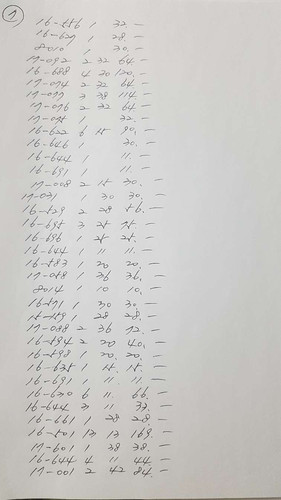 ①
16-556 1 32.-
16-627 1 28.-
8010 1 30.-
17-092 2 32 64.-
16-688 4 30 120.-
17-074 2 32 64.-
17-077 3 38 114.-
17-076 2 32 64.-
17-075 1 32.-
16-622 6 15 90.-
16-646 1 30.-
16-644 1 11.-
16-691 1 11.-
17-008 2 15 30.-
17-031 1 30 30.-
16-529 2 28 56.-
16-695 3 25 75.-
16-696 1 25 25.-
16-644 1 11 11.-
16-583 1 20 20.-
17-058 1 36 36.-
8014 1 10 10.-
16-571 1 30 30.-
15-559 1 28 28.-
17-088 2 36 72.-
16-594 2 20 40.-
16-598 1 20. 20.-
16-635 1 15. 15.-
16-691 1 11. 11.-
16-630 6 11. 66.-
16-644 3 11 33.-
16-661 1 28 28.-
16-501 13 13 169.-
17-601 1 38 38.-
16-644 4 11 44.-
17-001 2 42 84.-